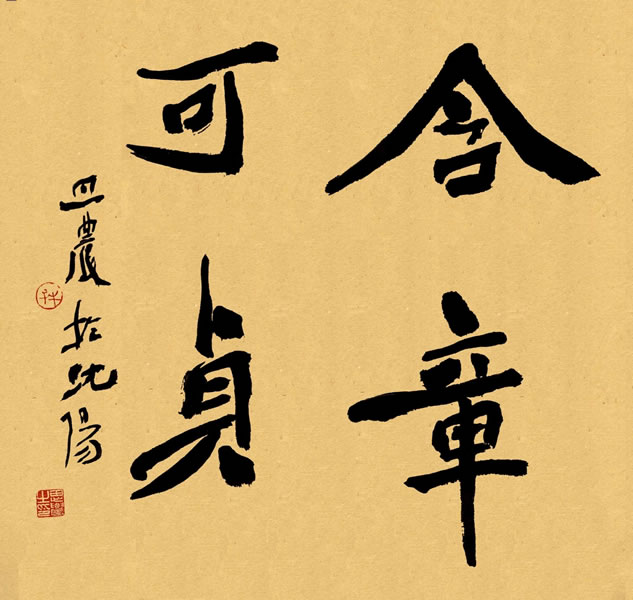 含章
可貞
農於沈陽